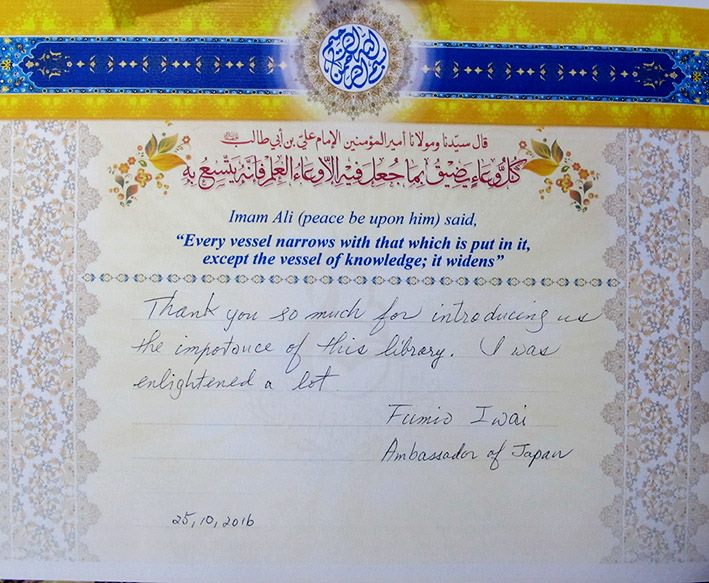 بسم الله الرحمن الرحيم
قال سيّدنا ومولانا أمير المؤمنين الإمام عليّ بن أبي طالب
كُلُّ وِعَاءٍ يَضِيْقُ بِمَا جُعِلَ فِيْهِ إِلاَّ وِعَاءُ الْعِلْمِ فَإِنَّهُ يَتَّسِعُ بِهِ
Imam Ali (peace be upon him) said,
“Every vessel narrows with that which is put in it,
except the vessel of knowledge; it widens”
Thank you so much for introducing us
the impotance of this library. I was
enlightened a lot.
Fumio Iwai
Ambassador of Japan
25,10,2016